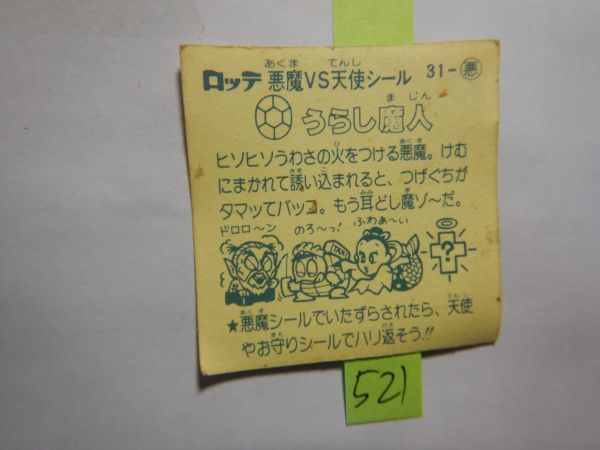 ロッテ 悪魔VS天使シール 31-悪
うらし魔人
ヒソヒソうわさの火をつける悪魔。けむ
にまかれて誘い込まれると、つげぐちが
タマッてバッゴ。もう耳どし魔ソ〜だ。
ドロロ〜ン のろ〜っ! ふわぁ〜い
TAXI ?
★悪魔シールでいたずらされたら、天使
やお守りシールでハリ返そう!!
521